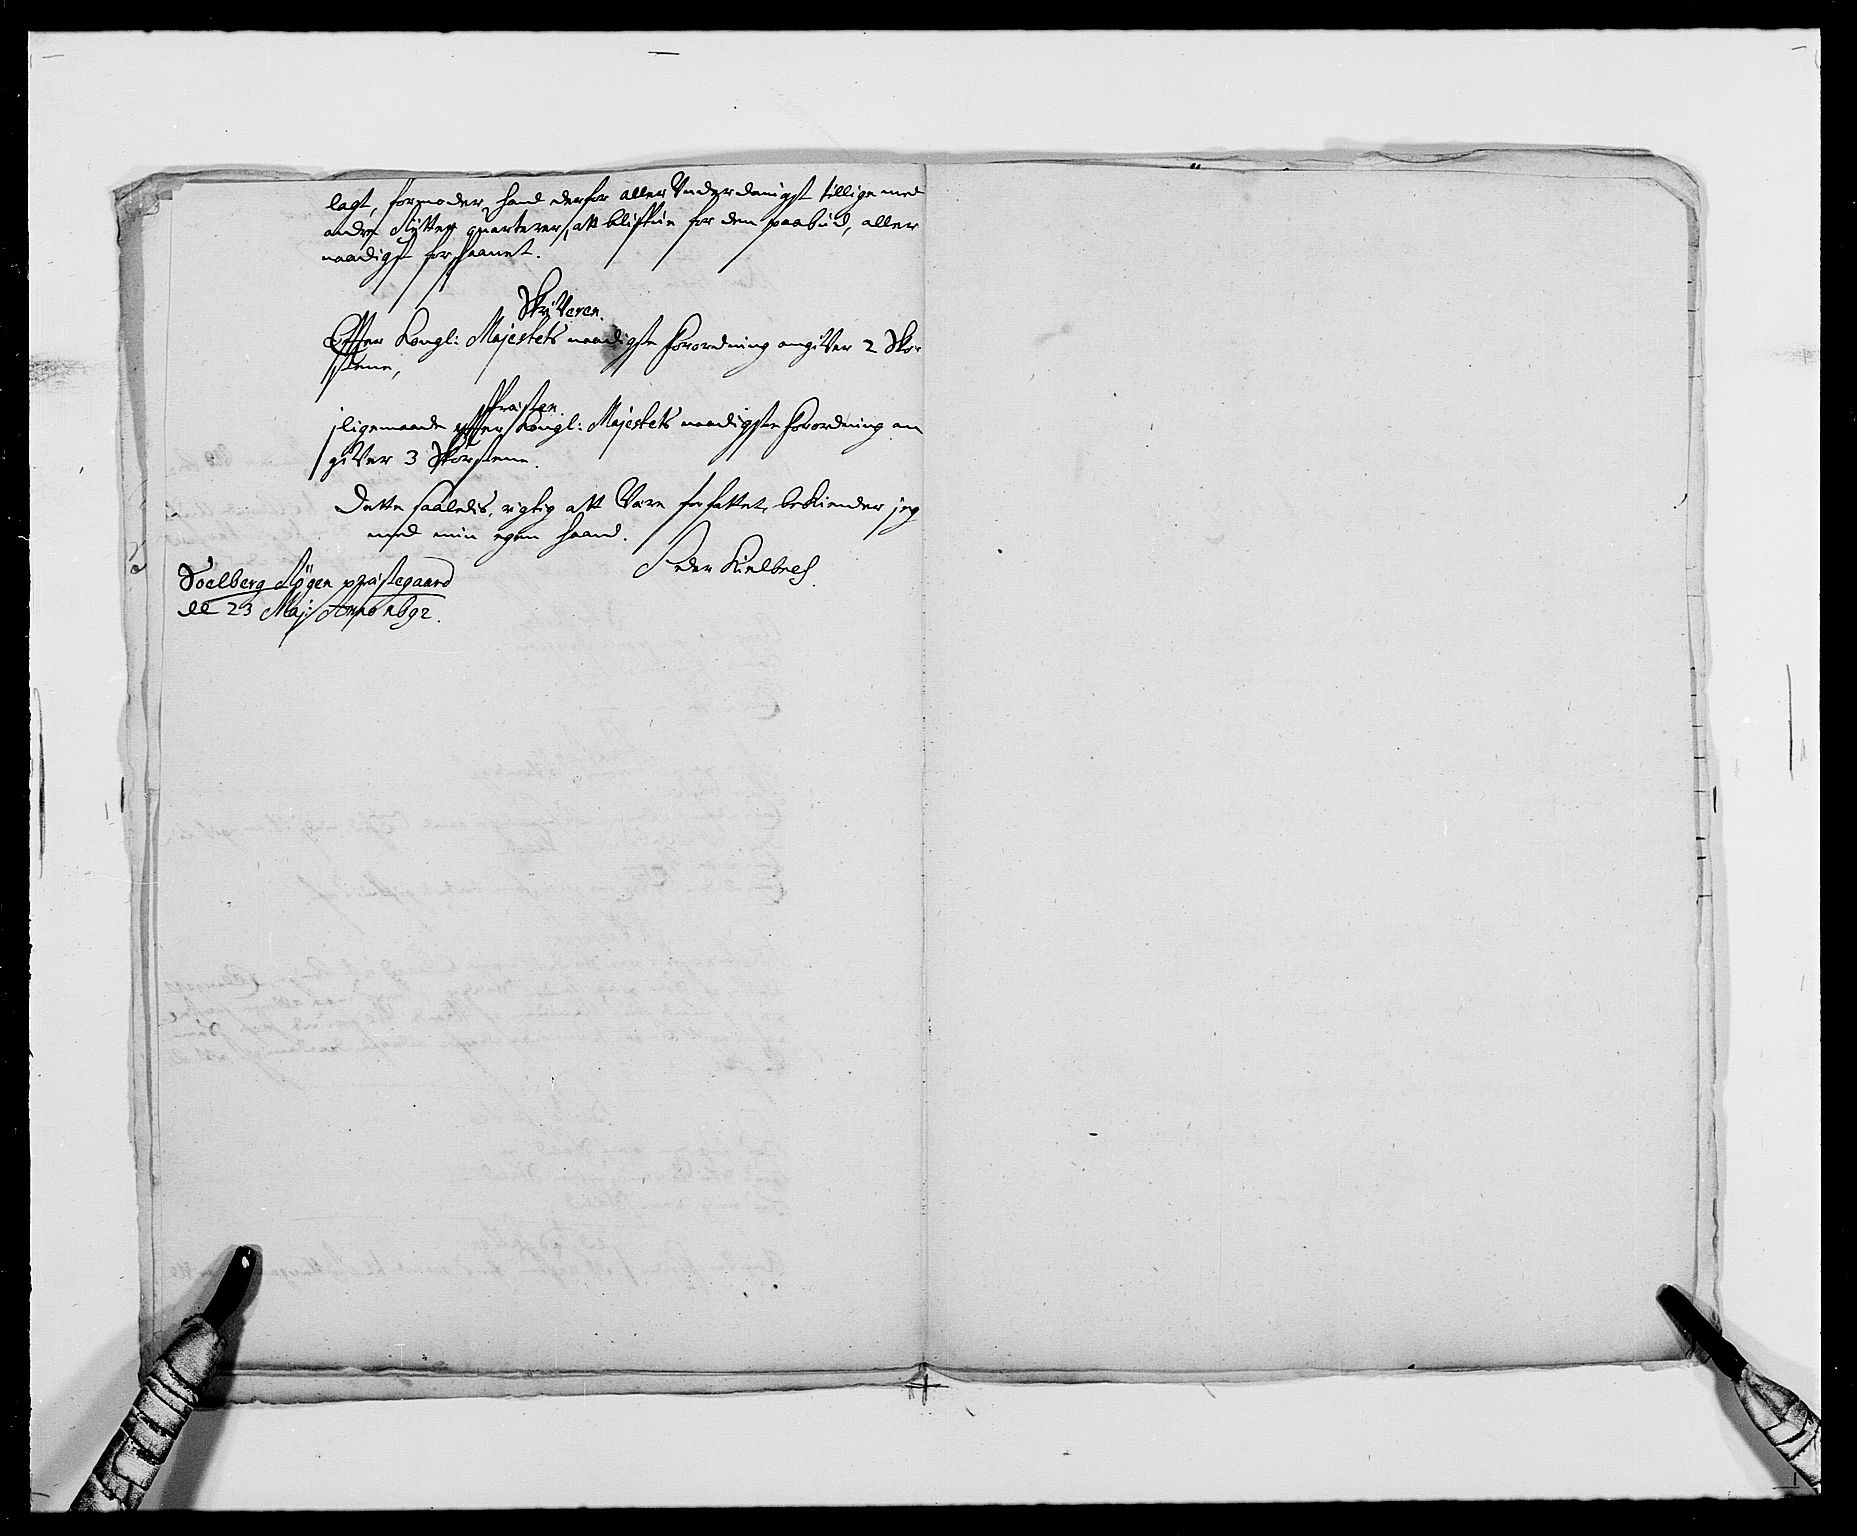 lagt, formoder hand derfor aller Underdanigst tillige med
andre Rytter quarterer, att bliffue for dem paabud, aller
naadigst forskaanet.
Skriveren.
Effter Kongl: Majestets naadigste forordning angiver 2 Skor-
stene,
Præsten.
jligemaade effter Kongl: Majestets naadigste forordning an
giver 3 Skorstene.
Dette saaledis, rigtig att Være forfattet, bekiender jeg
med min egen haand.
Peder
Soelberg præstegaard
23 Maj: Anno 1692.